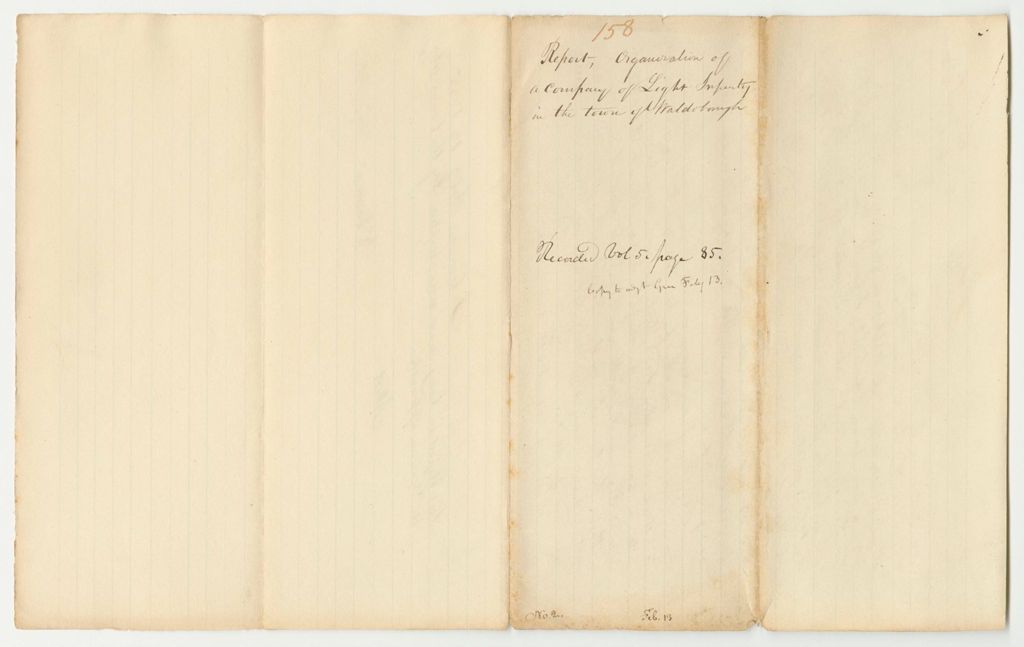 158
Report, Organization of
a company of Light Infanty
in the town of Waldoborough
Recorded Vol 5. page 85.
Copy to adjt Gen Feby 13.
No. 2.
Feb. 13